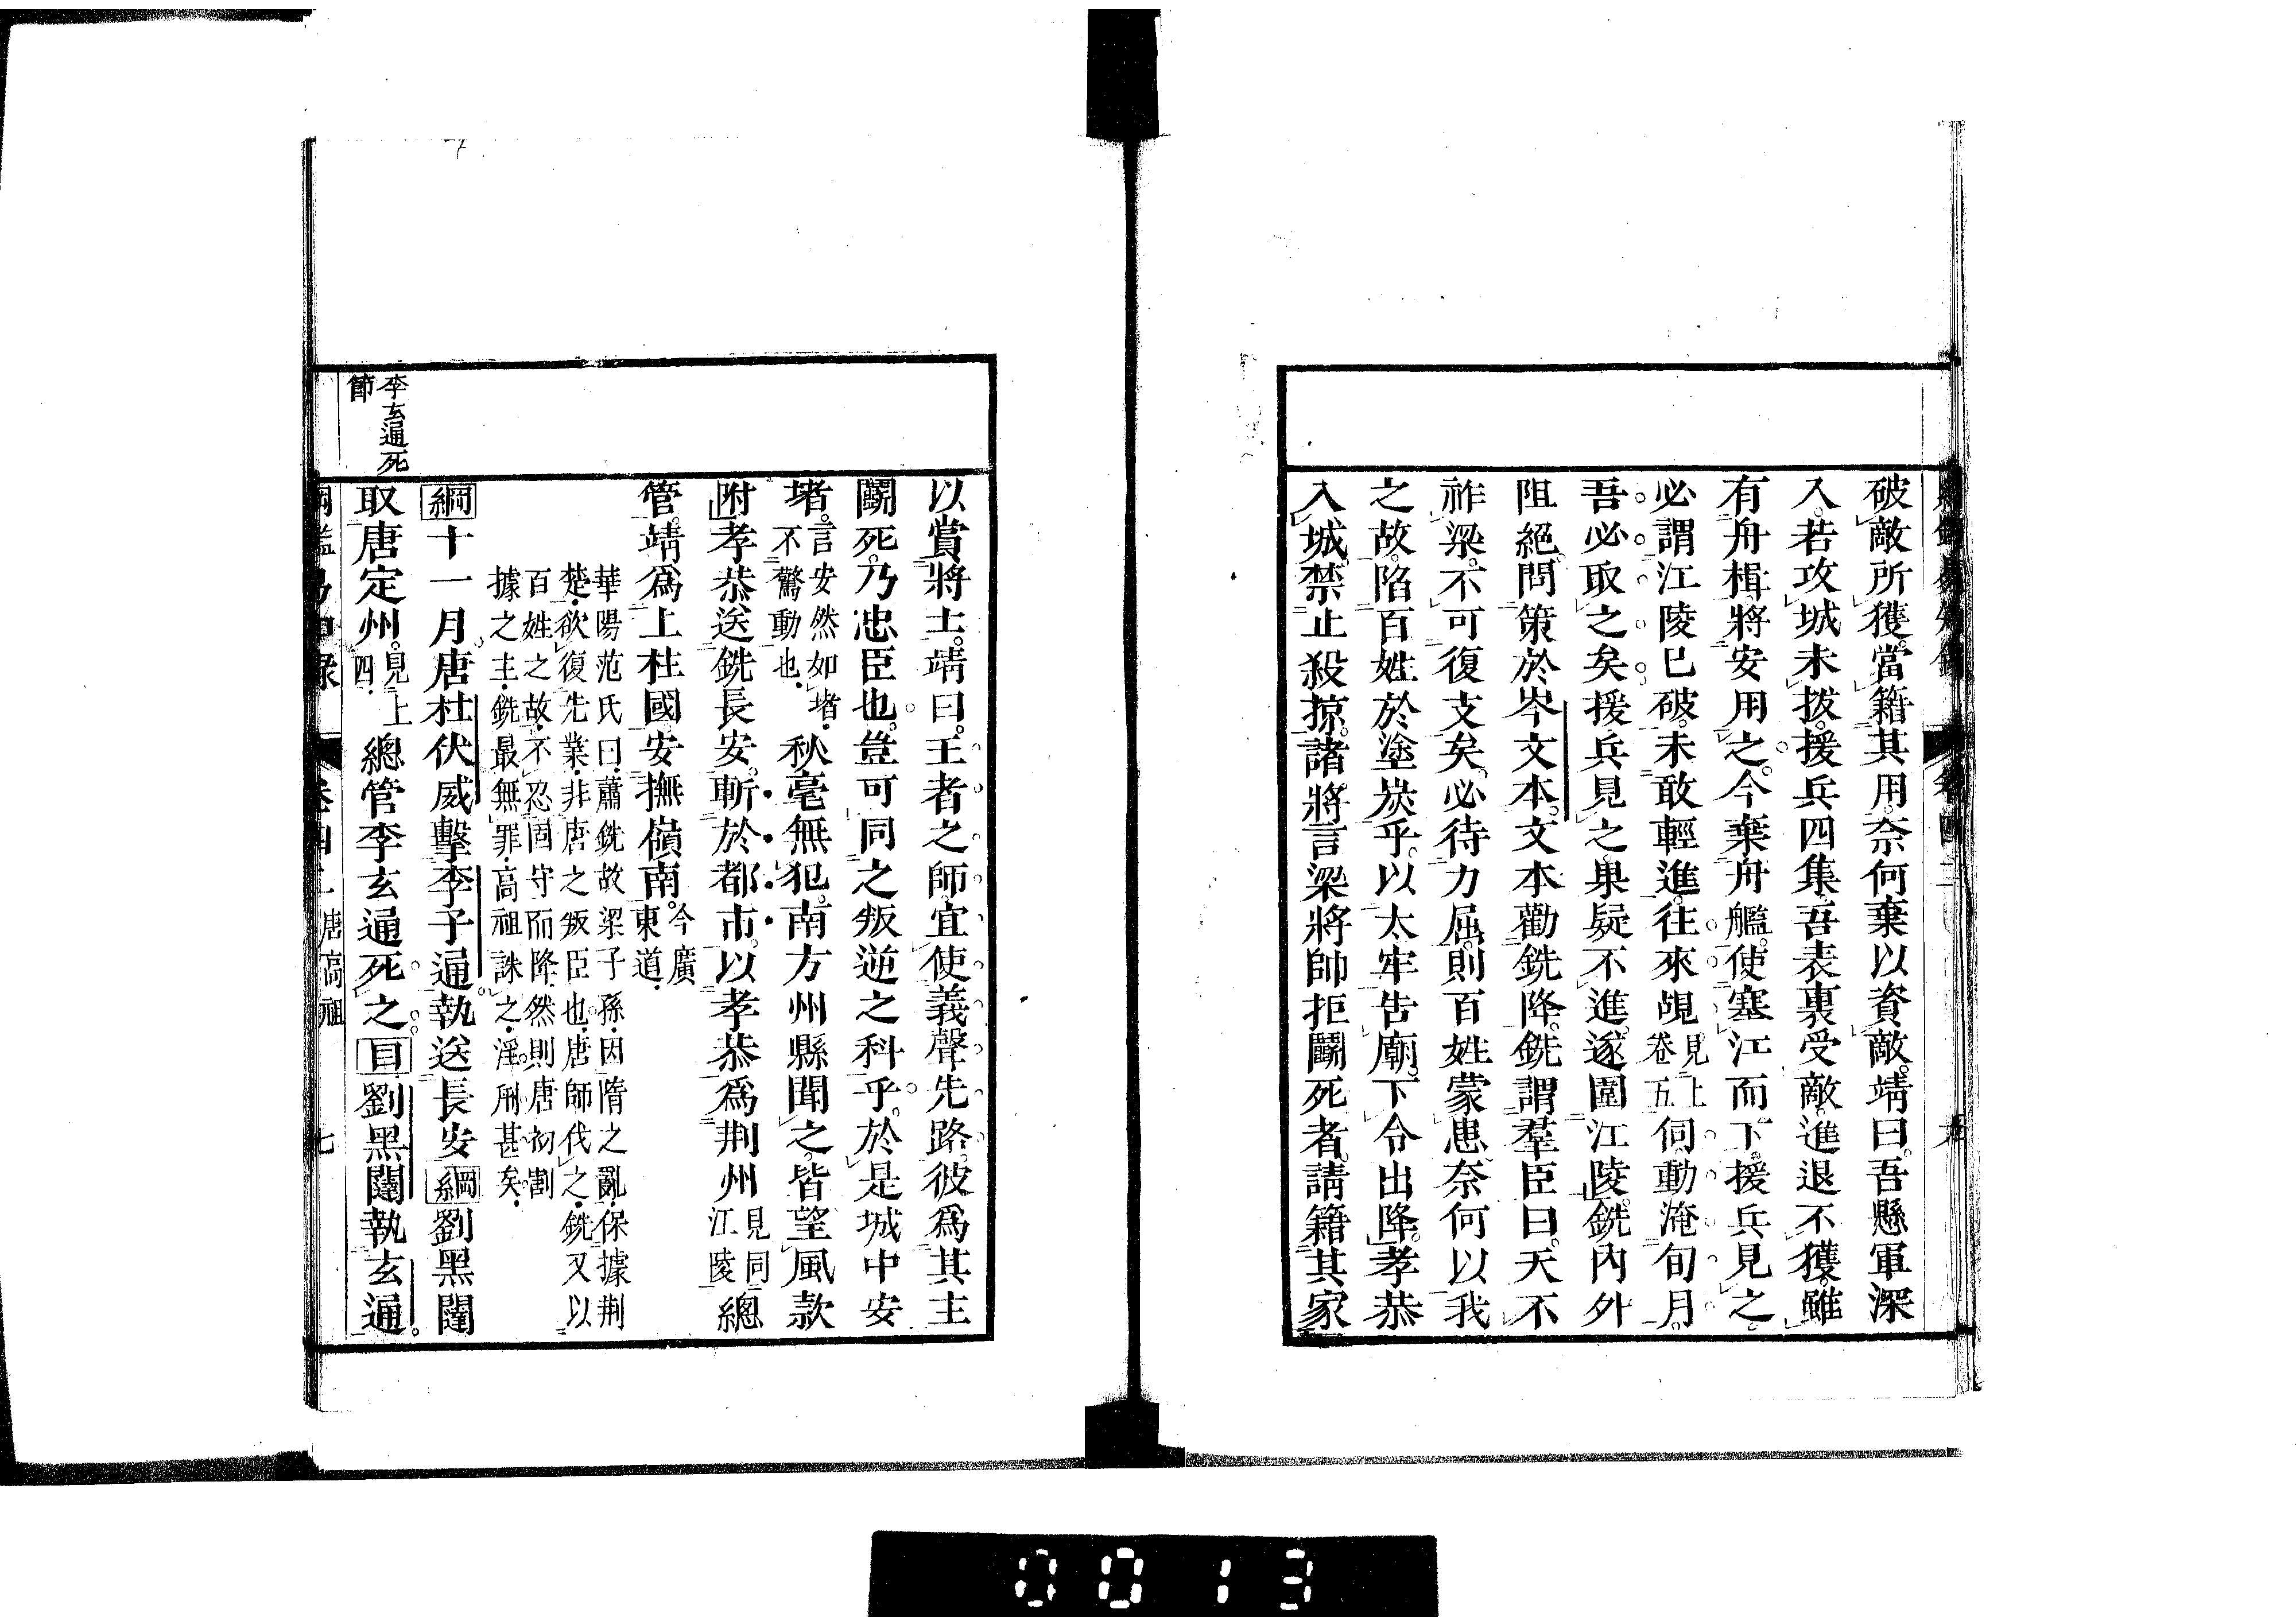 破敵所獲當籍其用奈何棄以資敵靖曰吾懸軍深
入若攻城未拔援兵四集吾表裏受敵進退不獲雖
有舟楫將安用之今棄舟艦使塞江而下援兵見之
必謂江陵已破未敢輕進往來覘見上卷五伺動淹旬月
吾必取之矣援兵見之果疑不進遂圍江陵銑內外
阻絕問策於岑文本文本勸銑降銑謂羣臣曰天不
祚梁不可復支矣必待力屈則百姓蒙患奈何以我
之故陷百姓於塗炭乎以太牢告廟下令出降孝恭
入城禁止殺掠諸將言梁將帥拒鬭死者請籍其家
以賞將士靖曰王者之師宜使義聲先路彼爲其主
鬭死乃忠臣也豈可同之叛逆之科乎於是城中安
堵言安然如堵不驚動也秋毫無犯南方州縣聞之皆望風款
附孝恭送銑長安斬於都市以孝恭爲荆州見同江陵總
管靖爲上柱國安撫嶺南今廣東道
華陽范氏曰蕭銑故梁子孫因隋之亂保據荆
楚欲復先業非唐之叛臣也唐師伐之銑又以
百姓之故不忍固守而降然則唐初割
據之主銑最無罪高祖誅之淫刑甚矣
綱十一月唐杜伏威擊李子通執送長安綱劉黑闥
取唐定州見上四總管李玄通死之目劉黑闥執玄通
李玄通死
節
唐高祖
七
0013